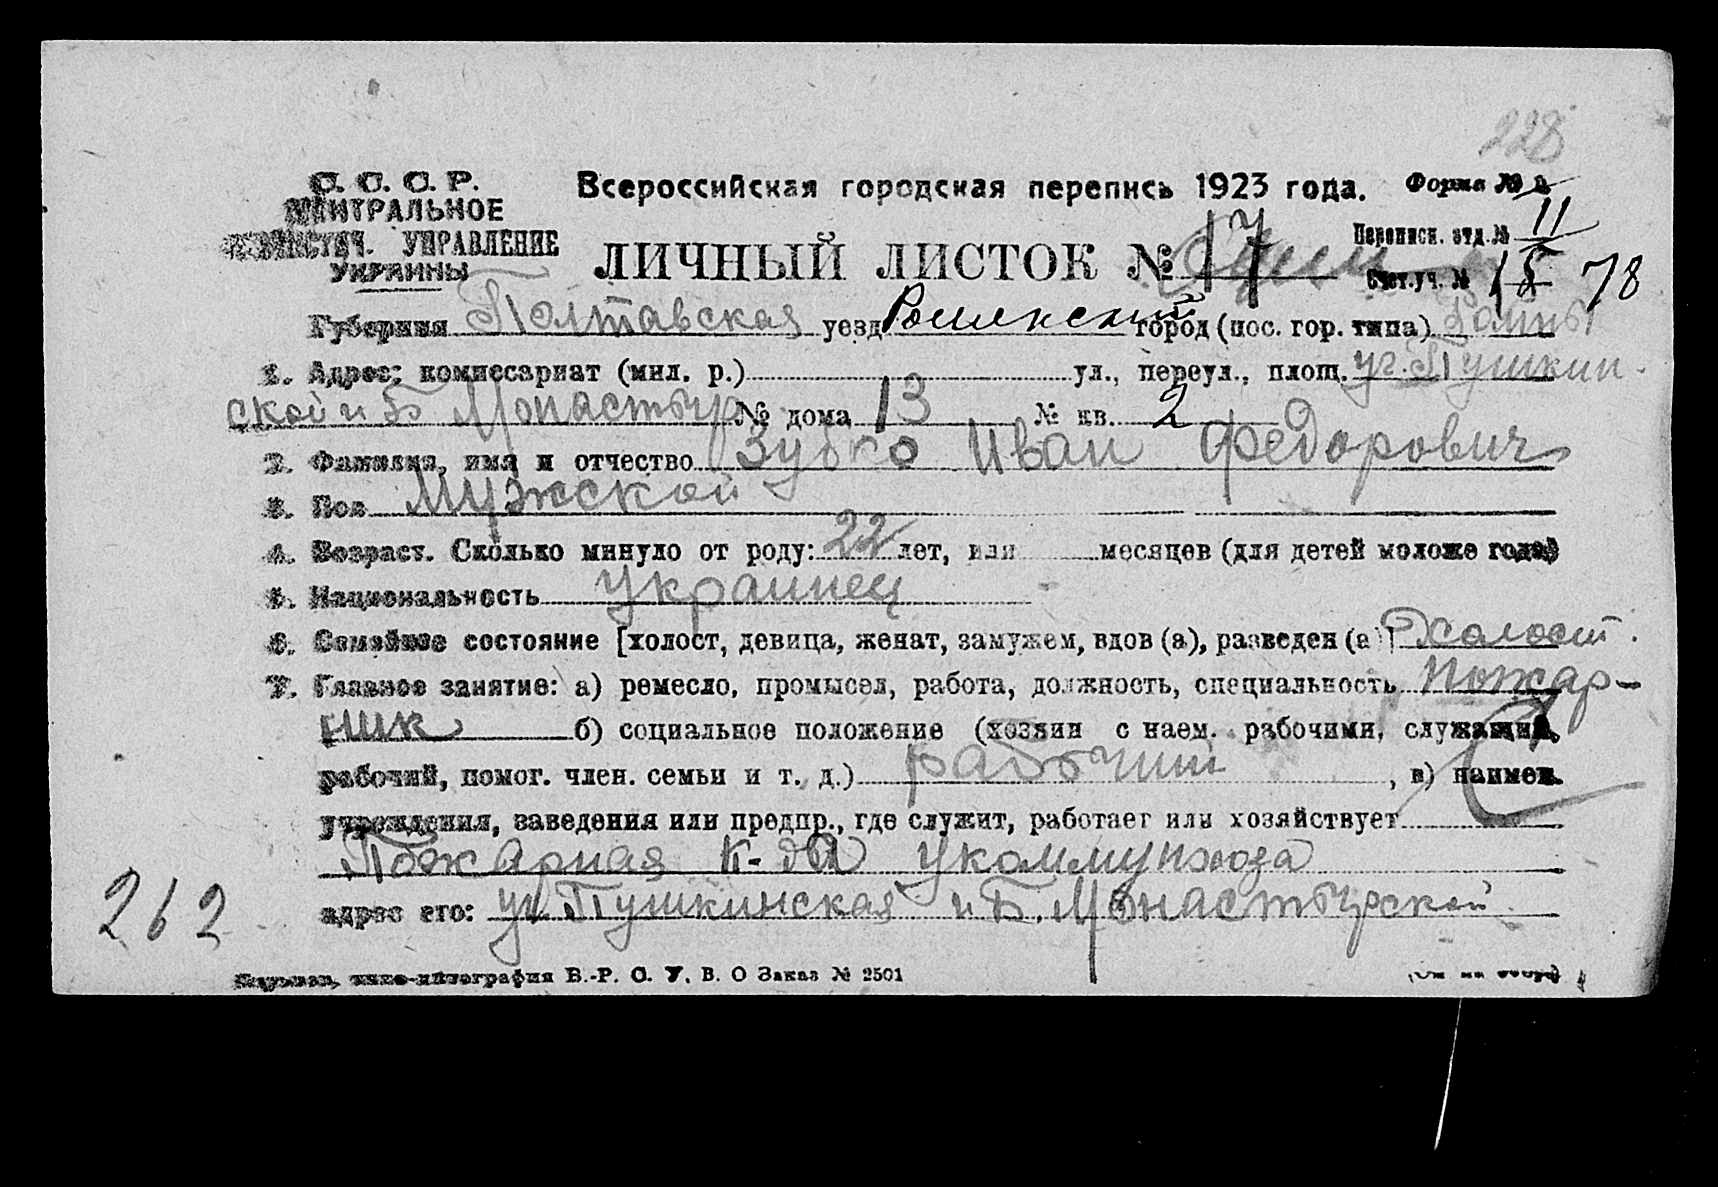 228
С. С. С. Р. Всероссийская городская перепись 1923 года. Форма № 2
ЦЕНТРАЛЬНОЕ
СТАТИСТИЧ. УПРАВЛЕНИЕ ЛИЧНЫЙ ЛИСТОК № 17 Переписн. отд. № 11
УКРАИНЫ Счет. уч. № 15 78
Губерния Полтавская уезд Роменский город (пос. гор. типа) Ромны
1. Адрес: комиссариат (мил. р.) ул., переул., площ. уг. Пушкин-
ской и Б Монастыр № дома 13 № кв. 2
2. Фамилия, имя и отчество Зубко Иван Федорович
3. Пол Мужской
4. Возраст. Сколько минуло от роду: 22 лет, или месяцев (для детей моложе года)
5. Национальность украинец
6. Семейное состояние [холост, девица, женат, замужем, вдов (а), разведен (а)] Холост.
7. Главное занятие: а) ремесло, промысел, работа, должность, специальность пожар-
ник б) социальное положение (хозяин с наем. рабочими, служащий,
рабочий, помог. член. семьи и т. д.) рабочий, в) наимен.
учреждения, заведения или предпр., где служит, работает или хозяйствует
Пожарная к-да укоммунхоза
адрес его: уг. Пушкинская и Б. Монастырской
262
типо-литография В.-Р. С. У. В. О Заказ № 2501